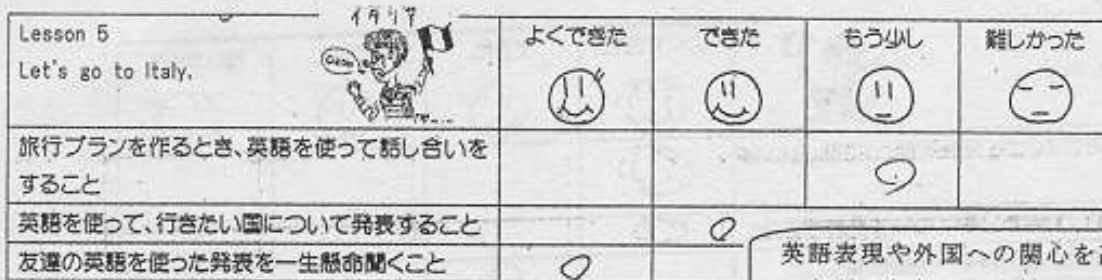 イタリア
Lesson 5
Let's go to Italy.
よくできた
できた
もう少し
難しかった
旅行プランを作るとき、英語を使って話し合いを
すること
英語を使って、行きたい国について発表すること
友達の英語を使った発表を一生懸命聞くこと
英語表現や外国への関心を